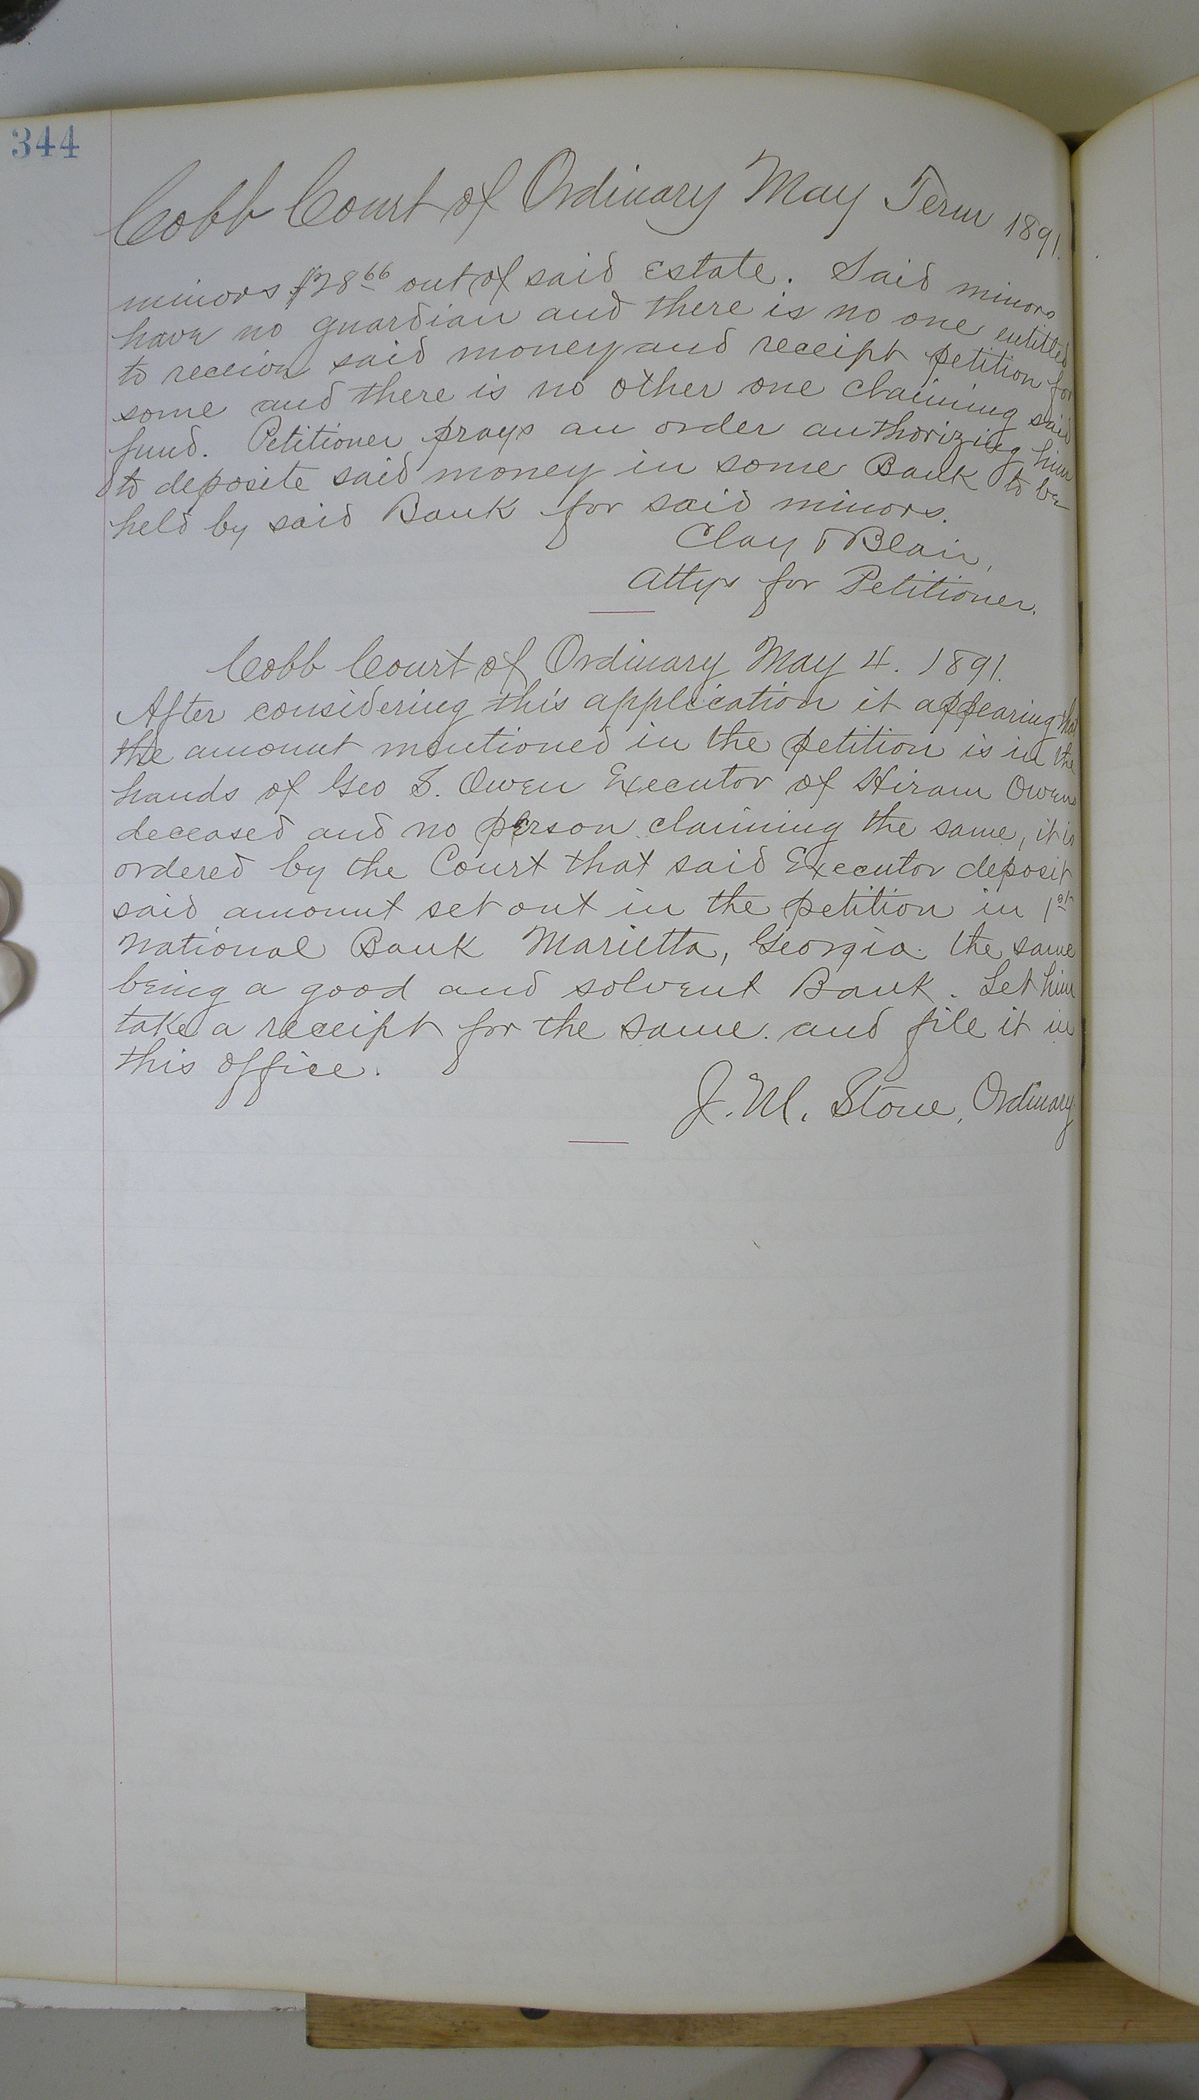 344
Cobb Court of Ordinary May Term 1891.
minors $28 66 out of said Estate. Said minors
have no guardian and there is no one entitled
to receive said money and receipt petition for
some and there is no other one claiming said
fund. Petitioner prays an order authorizing him
to deposite said money in some Bank to be
held by said Bank for said minors.
Clay & Blair,
Attys for Petitioner.
Cobb Court of Ordinary May 4. 1891.
After considering this application it appearing that
the amount mentioned in the petition is in the
hands of Geo S. Owen Executor of Hiram Owen
deceased and no person claiming the same, it is
ordered by the Court that said Executor deposit
said amount set out in the petition in 1st
National Bank Marietta, Georgia. the same
being a good and solvent Bank. Let him
take a receipt for the same. and file it in
this office.
J. M. Stone, Ordinary